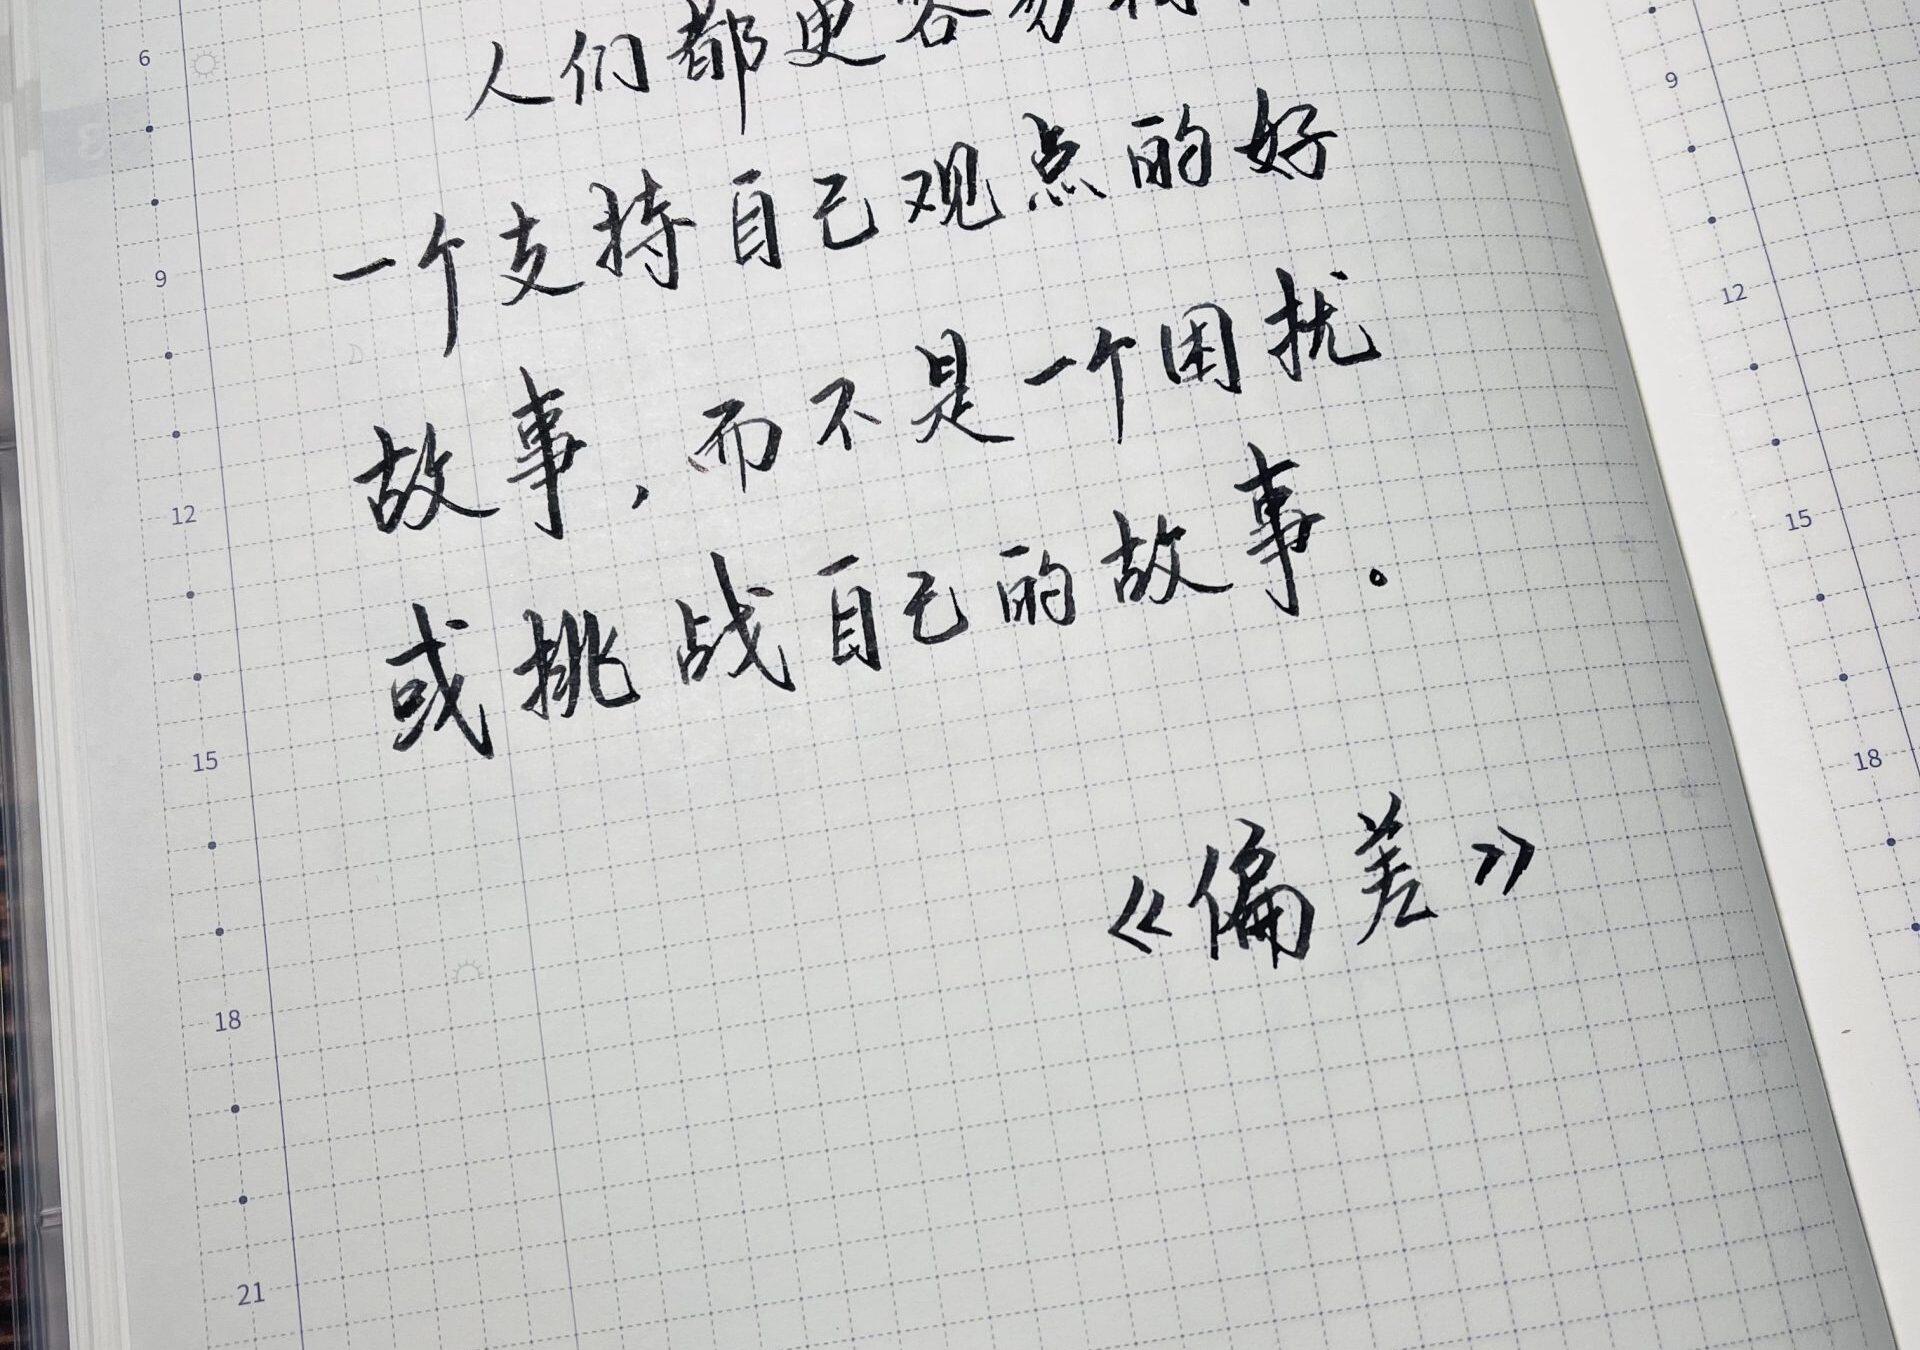 人们都更容易相信
一个支持自己观点的好
故事，而不是一个困扰
或挑战自己的故事。
《偏差》
6
9
12
15
18
21
9
12
15
18
3